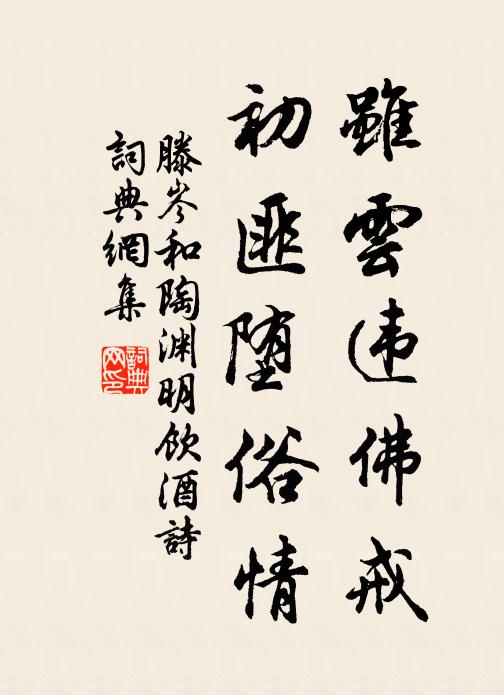 雖雲违佛戒
初匪堕俗情
滕岑和陶渊明飲酒詩
詞典網集
詞典网印